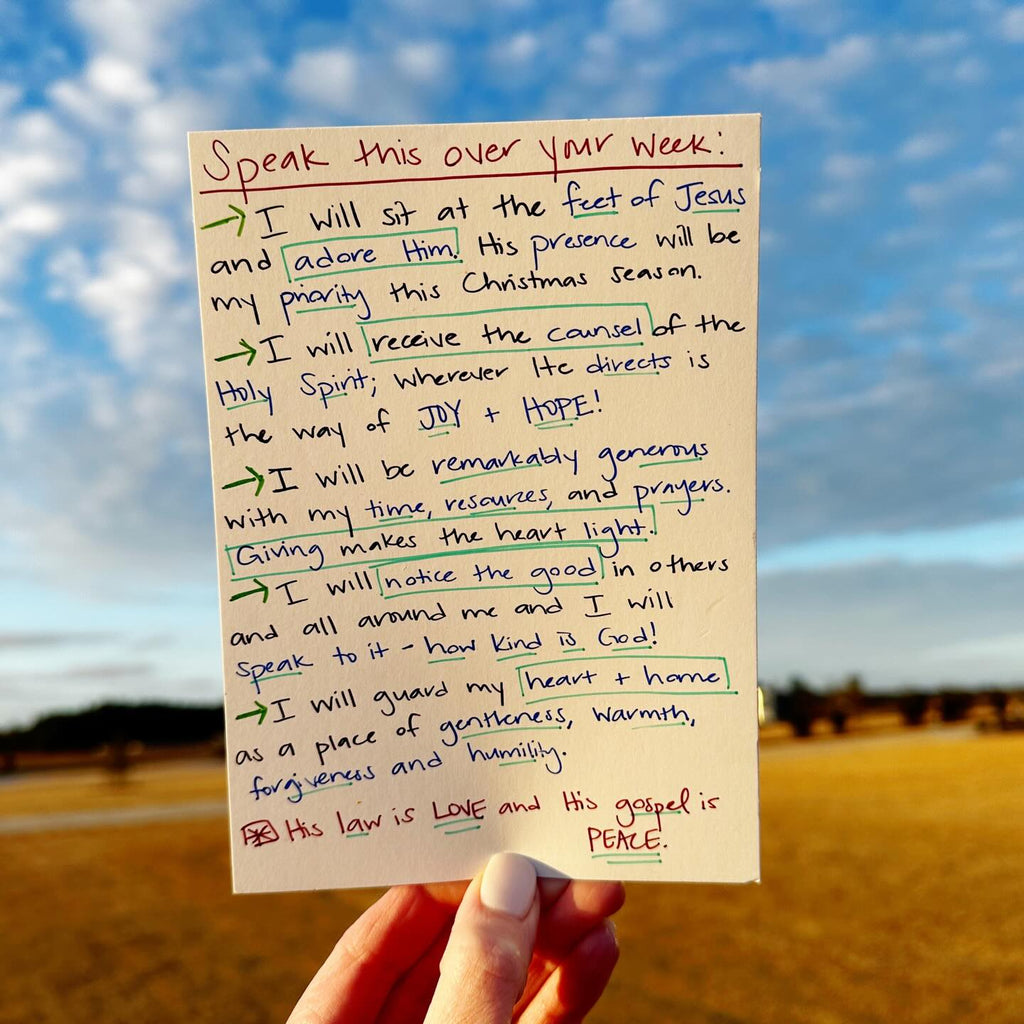 Speak this over your week:
→ I will sit at the feet of Jesus
and adore Him! His presence will be
my priority this Christmas season.
→ I will receive the counsel of the
Holy Spirit; wherever He directs is
the way of JOY + HOPE!
→ I will be remarkably generous
with my time, resources, and prayers.
Giving makes the heart light.
→ I will notice the good in others
and all around me and I will
speak to it - how kind is God!
→ I will guard my heart + home
as a place of gentleness, warmth,
forgiveness and humility.
His law is LOVE and His gospel is
PEACE.